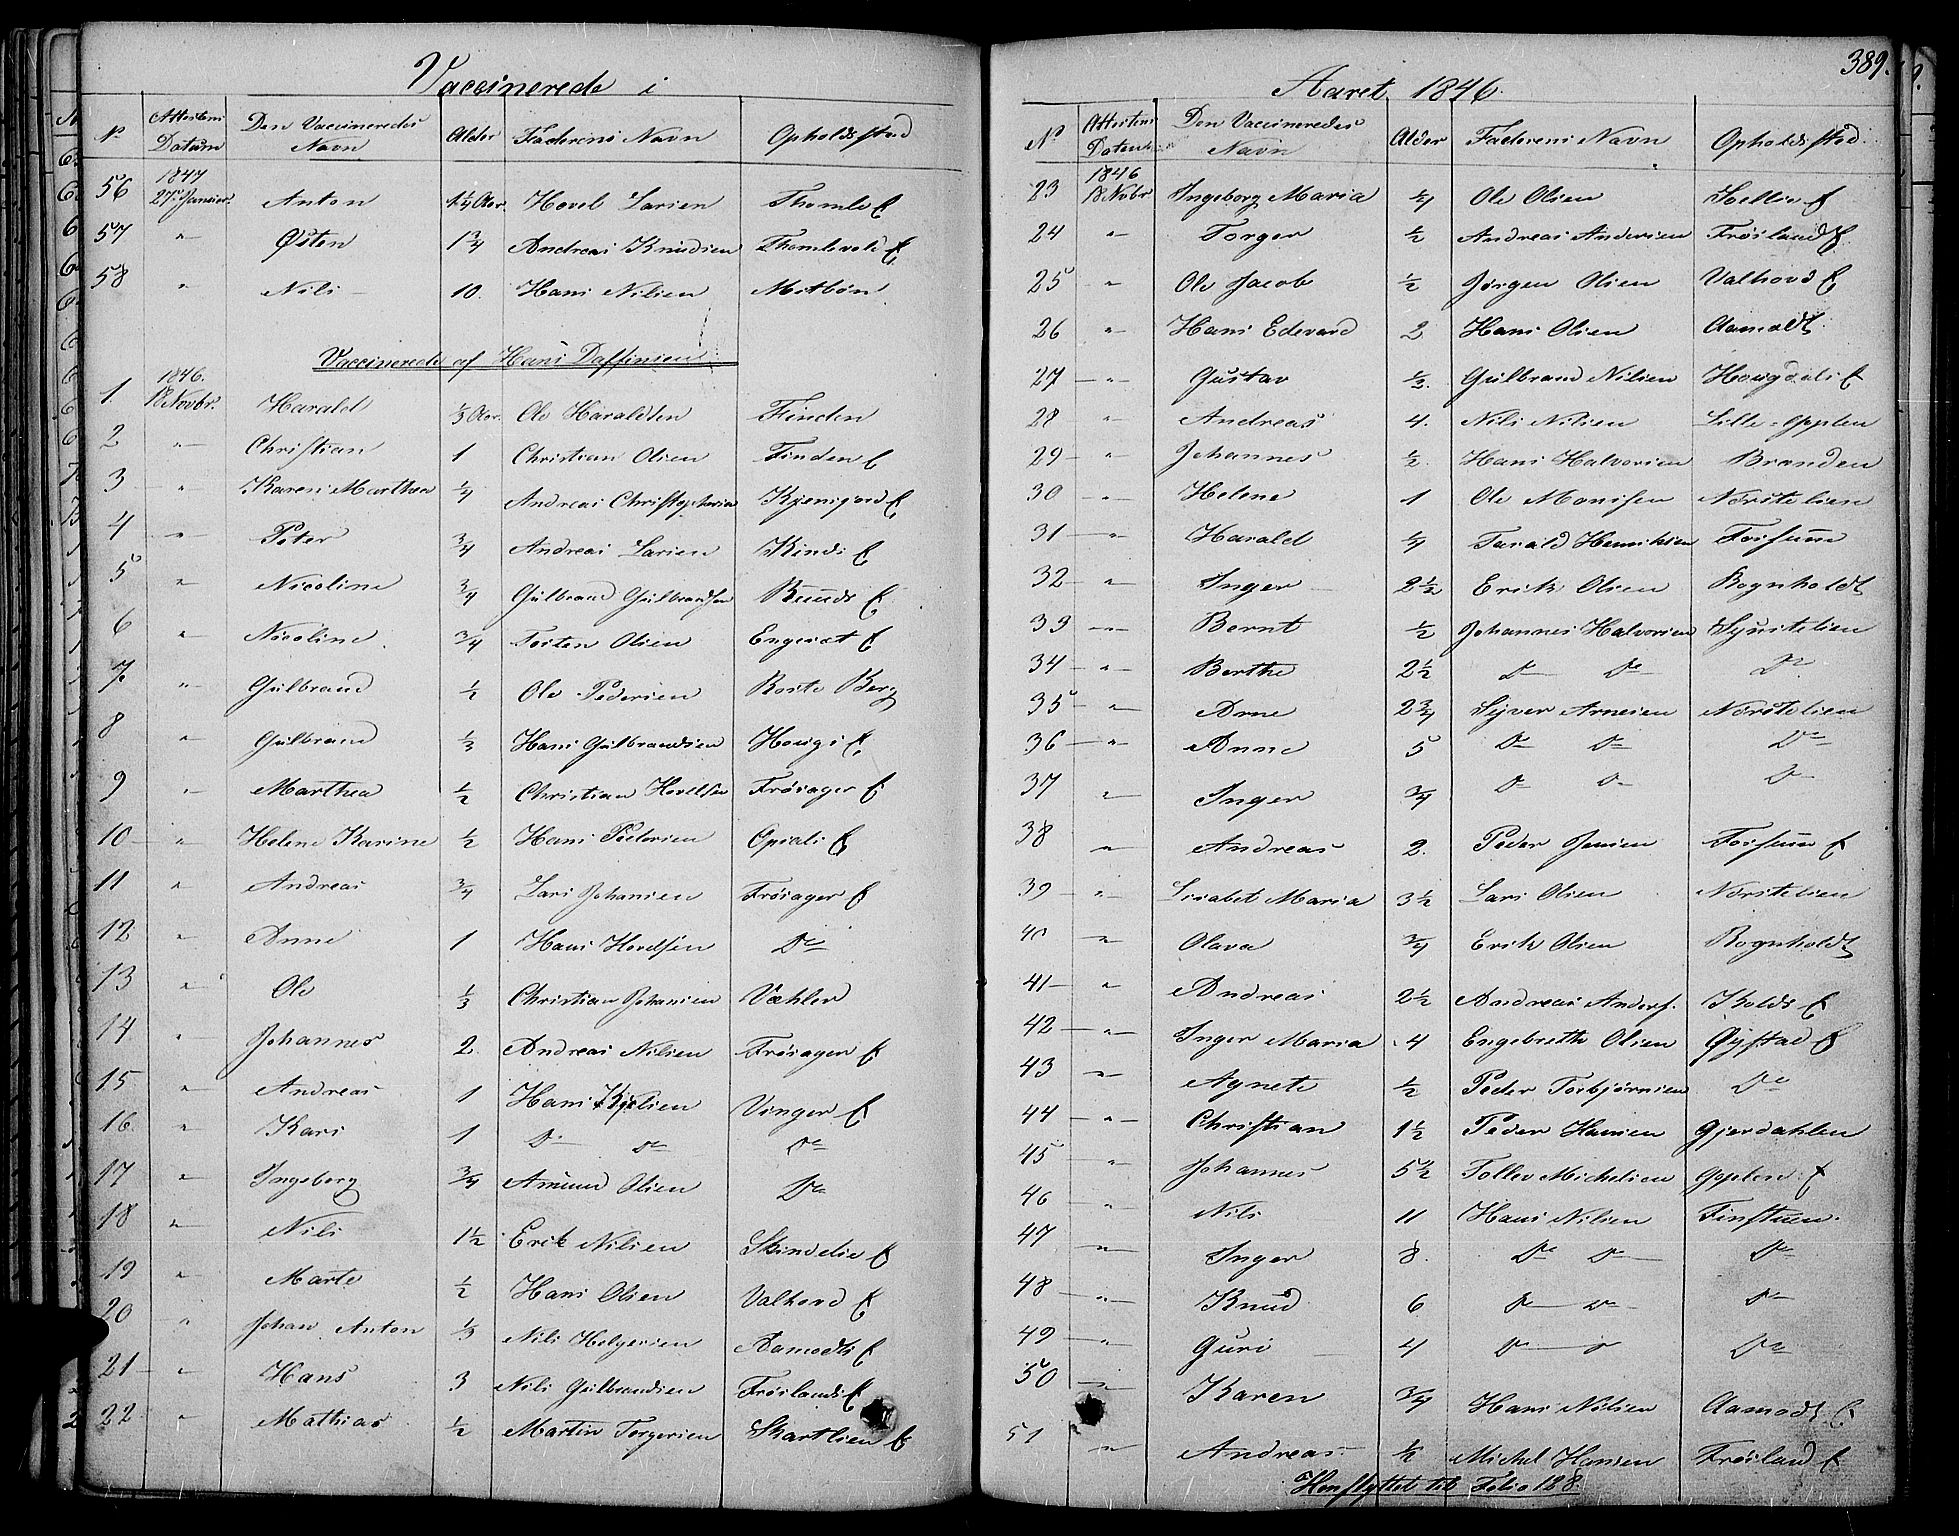 Vaccinerede i
No Attestens Datum Den Vaccineredes Navn Alder Faderens Navn Opholdssted
1847
56 27. Januar. Anton 1 1/4 Aar. Hovel Larsen Thomle E
57 " Østen 1 3/4 Andreas Knudsen Thomlevold E
58 " Nils 10. Hans Nilsen Metbøn
Vaccinerede af Hans Daffinsen
1846.
1. 18 Novbr. Harald 1/3 Aar. Ole Haraldsen Finden
2 " Christian 1 Christian Olsen Finden E
3 " Karen Marthea 1/4 Andreas Christophersen E
4 " Peter 3/4 Andreas Larsen Kinds E
5 " Nicoline 3/4 Gulbrand Gulbrandsen Ruuds E
6 " Nicoline 3/4 Tosten Olsen Engesæt E
7. " Gulbrand 1/2 Ole Pedersen Roste Berg
8 " Gulbrand 1/3 Hans Gulbrandsen Hougs E
9 " Marthea 1/2 Christian Hovelsen Frøsager E
10 " Helene Karine 1/2 Hans Pedersen Opsals E
11 " Andreas 3/4 Lars Johansen Frøsager E
12 " Anne 1 Hans Hovelsen Do
13 " Ole 1/3 Christian Johansen Væhler
14 " Johannes 2. Andreas Nilsen Frøsager E
15 " Andreas 1 Hans Vinger E
16 " Kari 1 Do Do Do
17 " Ingeborg 3/4 Amund Olsen Do
18 " Nils 1 1/2 Erik Nilsen Skindelie E
19 " Marte 1/2 Hans Olsen Valhovd E
20 " Johan Anton 1/3 Nils Helgesen Aamodts E
21 " Hans 3 Nils Gulbrandsen Frøslands E
22 " Mathias 1/2 Martin Torgersen Skartlien E
Aaret 1846.
389.
No Attestens Datum Den Vaccineredes Navn Alder Faderens Navn Opholdssted.
1846
23 18 Novbr. Ingeborg Maria 1/4 Ole Olsen Sollie E
24 " Torger 1/2 Andreas Andersen Frøsland E
25 " Ole Jacob 1/2 Jørgen Olsen Valhovd E
26 " Hans Edevard 2 Hans Olsen Aamodt
27 " Gustav 1/3. Gulbrand Nilsen Hougsrli E
28 " Andreas 4. Nils Nilsen Lille-Opplen
29 " Johannes 1/2. Hans Halvorsen Branden
30 " Helene 1 Ole Monsen Nørstelien
31 " Harald 1/4 Tarald Henriksen Fossum
32 " Inger 2 1/2 Erik Olsen Rognholdt
33 " Bernt 1/2 Johannes Halvorsen Synstelien
34 " Berthe 2 1/2 Do Do Do
35 " Arne 2 3/4 Syver Arnesen Nørstelien
36 " Anne 5 Do Do Do
37 " Inger 3/4 Do Do Do
38 " Andreas 2. Peder Jensen Fossum E
39 " Lisabet Maria 3 1/2 Lars Olsen Nørstelien
40 " Olava 3/4 Erik Olsen Rognholdt
41 " Andreas 2 1/2 Andreas Anders. Kolds E
42 " Inger Maria 4 Engebreth Olsen Øystad E
43 " Agnete 1/2 Peder Torbjørnsen Do
44 " Christian 1 1/2 Peder Hansen Gjerdahlen
45 " Johannes 5 1/2 Tollev Michelsen Opplen E
46 " Nils 11 Hans Nilsen Finstuen.
47 " Inger 8. Do Do Do
48 " Knud 6 Do Do Do
49 " Guri 4 Do Do Do
50 " Karen 3/4 Hans Nilsen Aamodt E
51 " Andreas 1/2 Michel Hansen Frøsland E
Henflyttet til Folio 188.